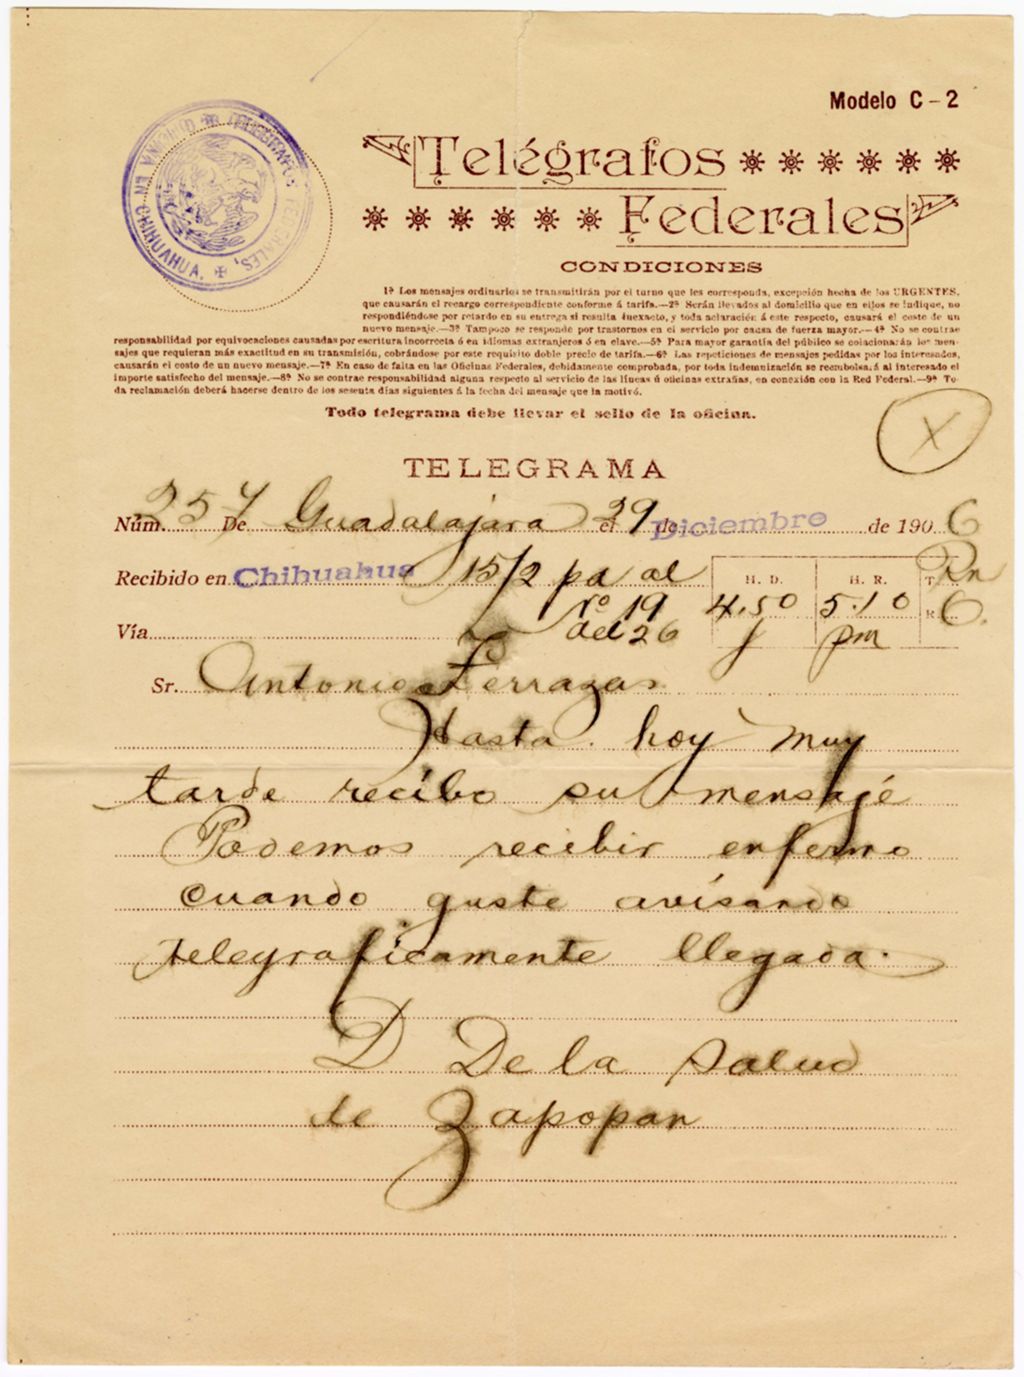 Modelo C-2
OFICINA DE TELEGRAFOS FEDERALES, EN CHIHUAHUA.
Telégrafos
Federales
CONDICIONES
1ª Los mensajes ordinarios se transmitirán por el turno que les corresponda, excepción hecha de los URGENTES,
que causarán el recargo correspondiente conforme á tarifa.—2ª Serán llevados al domicilio que en ellos se indique, no
respondiéndose por retardo en su entrega si resulta inexacto, y toda aclaración á este respecto, causará el costo de un
nuevo mensaje.—3ª Tampoco se responde por trastornos en el servicio por causa de fuerza mayor.—4ª No se contrae
responsabilidad por equivocaciones causadas por escritura incorrecta ó en idiomas extranjeros ó en clave.—5ª Para mayor garantía del público se colacionarán los men-
sajes que requieran más exactitud en su transmisión, cobrándose por este requisito doble precio de tarifa.—6ª Las repeticiones de mensajes pedidas por los interesados,
causarán el costo de un nuevo mensaje.—7ª En caso de falta en las Oficinas Federales, debidamente comprobada, por toda indemnización se reembolsará al interesado el
importe satisfecho del mensaje.—8ª No se contrae responsabilidad alguna respecto al servicio de las líneas ú oficinas extrañas, en conexión con la Red Federal.—9ª To-
da reclamación deberá hacerse dentro de los sesenta días siguientes á la fecha del mensaje que la motivó.
Todo telegrama debe llevar el sello de la oficina.
X
TELEGRAMA
Núm. 257 De Guadalajara el 29 de Diciembre de 190 6
Recibido en Chihuahua 15/2 pa al H. D. H. R. T. Rn
nº 19 4.50 5.10 R. 6.
Vía del 26 pm
Sr. Antonio Terrazas
Hasta hoy muy
tarde recibo su mensaje
Podemos recibir enfermo
cuando guste avisando
telegraficamente llegada.
D De la Salud
de Zapopan